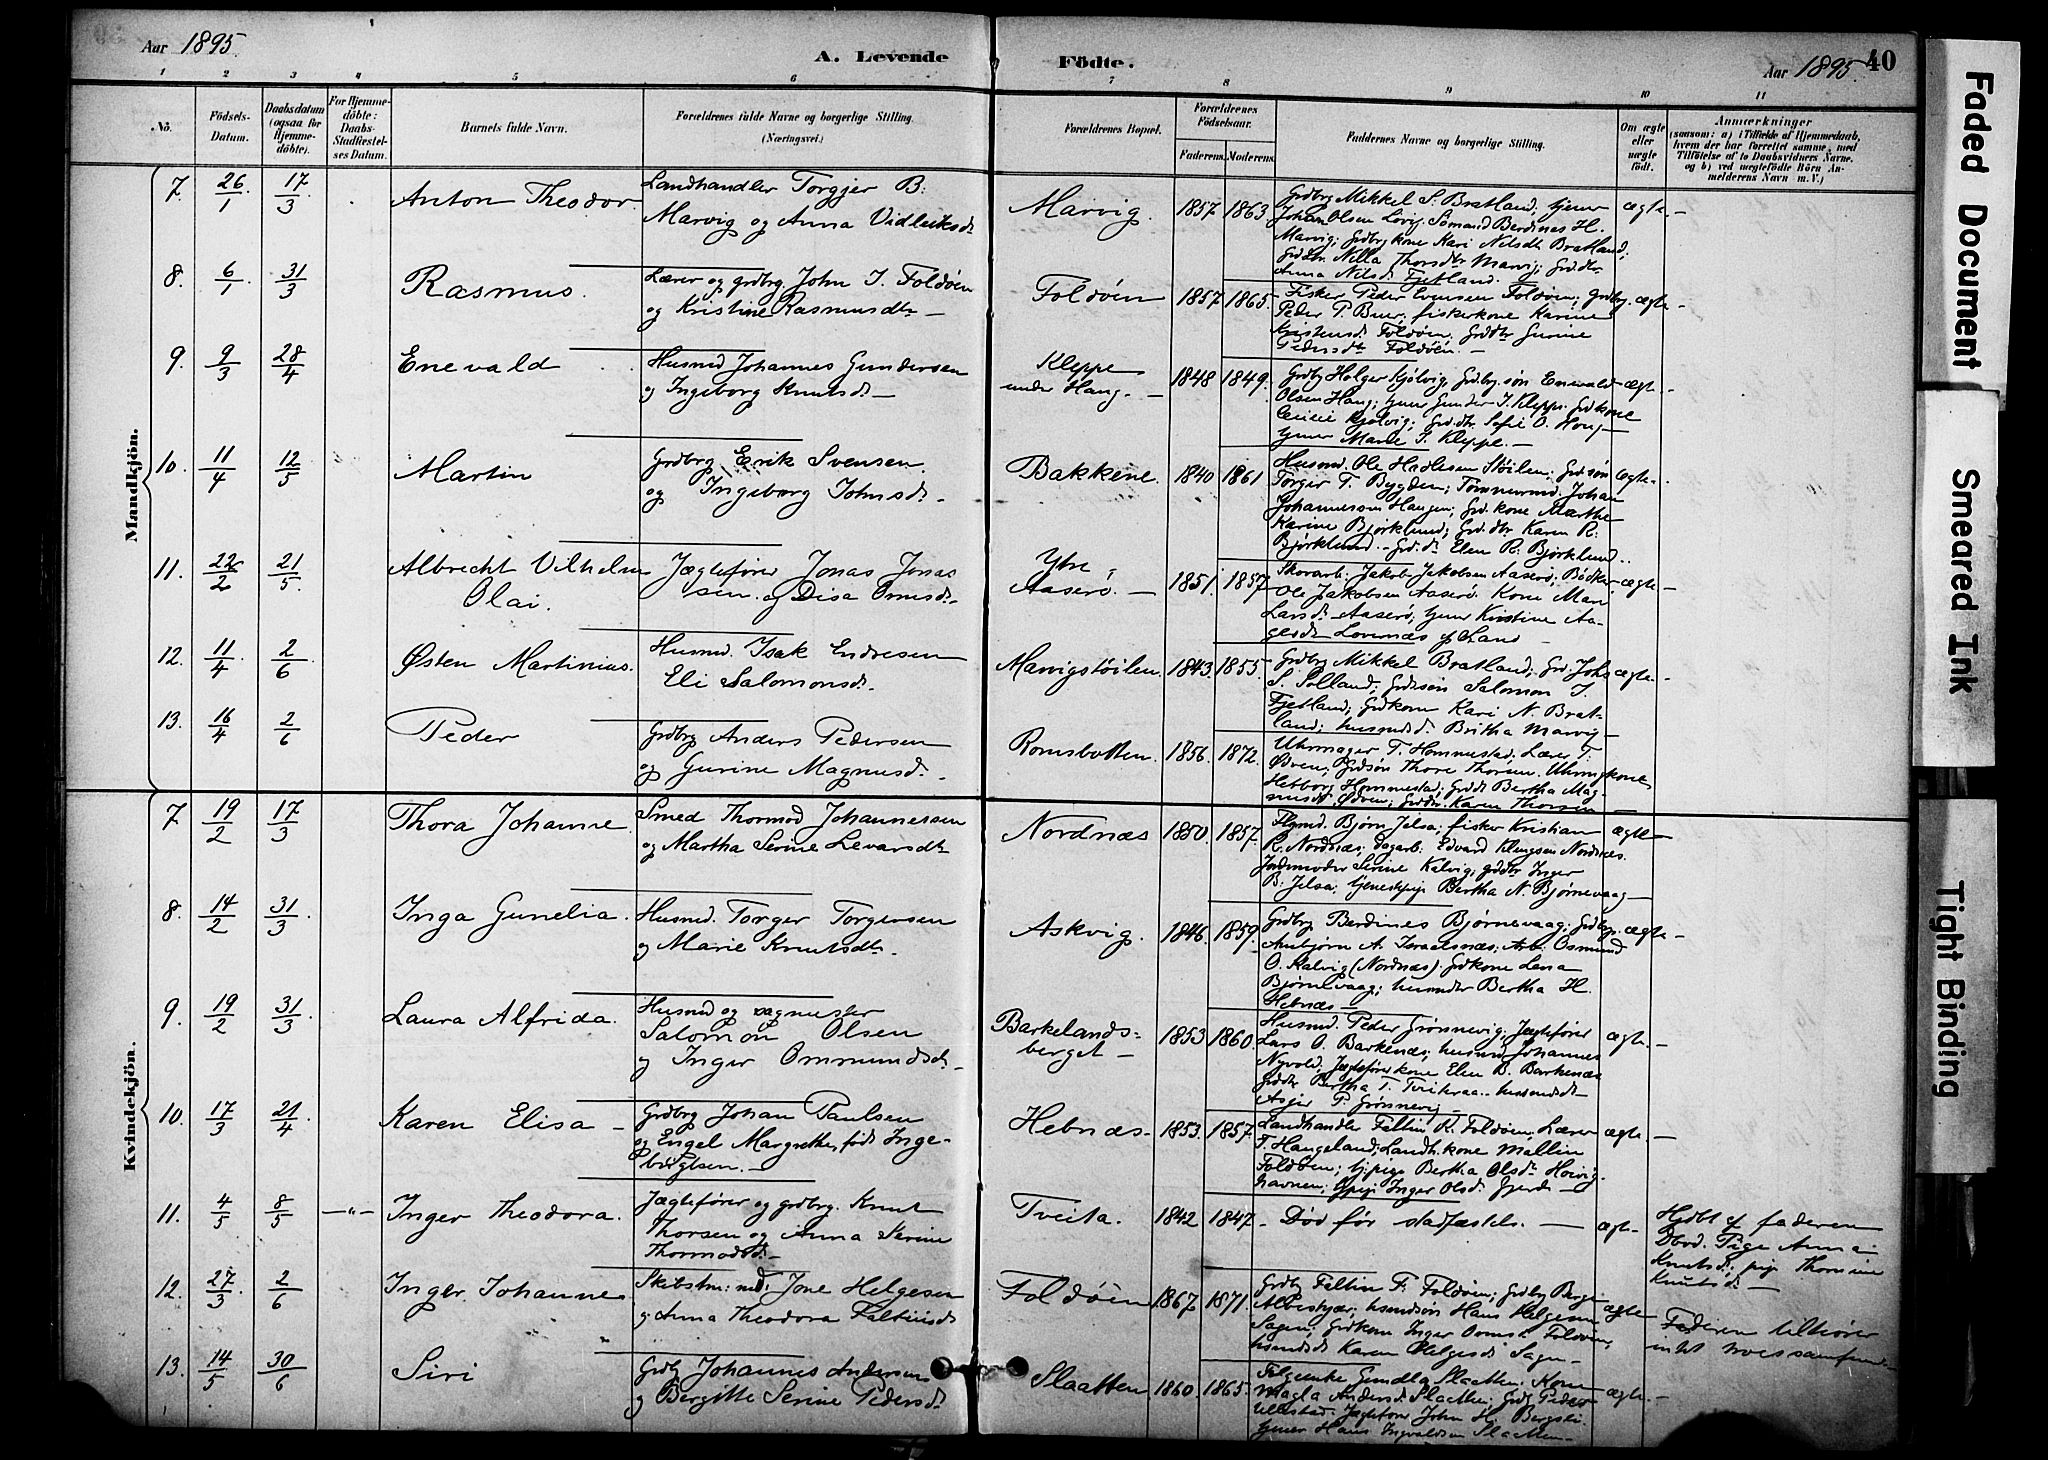 Aar 1895.
A. Levende
Födte.
Aar 1895.
40
1 2 3 4 5 6 7 8 9 10 11
No.
Födsels-
Datum.
Daabsdatum
(ogsaa for
Hjemme-
döbte).
For Hjemme-
döbte:
Daabs-
Stadfæstel-
ses Datum.
Barnets fulde Navn.
Forældrenes fulde Navne og borgerlige Stilling.
(Næringsvei.)
Forældrenes Bopæl.
Forældrenes
Födselsaar.
Faderens.
Moderens.
Faddernes Navne og borgerlige Stilling.
Om ægte
eller
uægte
födt.
Anmærkninger
(saasom: a) i Tilfælde af Hjemmedaab,
hvem der har forrettet samme, med
Tilföielse af to Daabsvidners Navne,
og b) ved uægtefödte Börn An-
melderens Navn m. V.)
Mandkjön.
7. 26/1 17/3 Anton Theodor
Landhandler Torgjer B.
Marvig og Anna Vidleiksdt.
Marvig. 1857 1863
Grdbr Mikkel S. Bratland; tjener
Johan Olsen Lovig; Sømand Berdines H.
Marvig; Grdbrkone Kari Nilsdt Bratland;
Grdtr. Nilla Thorsdtr Marvig; Grd.dtr.
Anna Nilsd. Fjetland.
ægte
8. 6/1 31/3 Rasmus.
Lærer og grdbrg John I. Foldøen
og Kristine Rasmusdtr
Foldöen 1857 1865.
Fisker Peder Evensen Foldöen; Grdbrg.
Peder P. Buer, fiskerkone Karine
Kristensd. Foldöen; Grddtr Gurine
Pedersdtr Foldöen.
ægte
9. 9/3 28/4 Enevald
Husmd Johannes Gundersen
og Ingeborg Knutsd.
Kleppe
under Hang. 1848 1849.
Grdbrg Holger Kjölvig, Grdbrg. sön Enevald
Olsen Hang; tjener Gunder J. Kleppe. Grdkone
Kjölvig; Grd.dtr. Sofie O. Hang
tjener Marie J. Kleppe.
ægte
10. 11/4 12/5 Martin
Grdbrg Erik Svensen.
og Ingeborg Johnsd.
Bakkene. 1840 1861
Husmd. Ole Hadlesen Stöilen; Grd.sön
Torger T. Bygden; Tömmermd. Johan
Johannessen Haugen; Grd.kone Marthe
Karine Björklund; Grd.dtr. Karen R.
Björklund. Grd.d. Elen R. Björklund.
ægte
11. 22/2 21/5 Albrecht Vilhelm
Olai.
Jægtefører Jonas Jonas
sen. og Disa Ormsd.
Ytre
Aaserö. 1851. 1857
Skovarb. Jakob Jakobsen Aaserö; Bödker
Ole Jakobsen Aaserö. Kone Mari
Larsd. Aaserö, tjener Kristine Aa-
gesdt Lovernæs af Sand
ægte
12. 11/4 2/6 Østen Martinius.
Husmd. Isak Endresen
Eli Salomonsd.
Marvigstöilen. 1843 1855.
Grdbrg Mikkel Bratland; Grd. Johs
S. Solland; Grdsön Salomon J.
Fjetland; Grdkone Kari N. Brat-
land; husmdsd. Britha Marvig
ægte
13. 16/4 2/6 Peder
Grdbrg Anders Pedersen
og Gurine Magnusd.
Romsbotten. 1856. 1872.
Uhrmager T. Hommestad; Lær. T.
Ødven; Grdsön Thore Thorsen. Uhrmgkone
Hommestad; Grddt Bertha Mag-
nusdt Ødven; Grddtr. Karen Thorsen
Kvindekjön.
7 19/2 17/3 Thora Johanne.
Smed Thormod Johannessen
og Martha Serine Levarsdtr
Nordnæs 1850. 1857.
Björn Jelsa; fisker Kristian
R. Nordnæs; Dagarb. Edvard Nordnæs.
Jordemoder Serine Kalvig; grddtr Inger
B. Jelsa; tjenestepige Bertha N. Björnevaag
ægte
8. 14/2 31/3 Inga Gunelia.
Husmd. Torger Torgersen
og Marie Knutsdtr.
Askvig. 1846. 1859.
Grdbrg Berdines Björnevaag; Grdbrg.
A. Israelsnæs; Arb. Osmund
O. Kalvig (Nordnæs). Grdkone Lena
Björnevaag; husmdtr Bertha H.
Hebnæs
ægte
9. 19/2 31/3 Laura Alfrida.
Husmd og sagmester
Salomon Olsen
og Inger Ommundsdt.
Barkelands-
berget 1853 1860.
Husmd. Peder Grönnevig; Jægtefører
Lars O. Barkenæs; husmd Johannes
Nyvold; Jægteførerkone Elen B. Barkenæs
Grddtr Bertha T. Tveiteraa. husmdsdt
P. Grönnevig
ægte.
10. 17/3 21/4 Karen Elisa
Grdbrg Johan Paulsen
og Engel Margrethe, født Inge-
brigtsen.
Hebnæs 1853. 1857
Landhandler Feltin K. Foldöen; Lærer
T. Hangeland; Landh.kone Mallin
Foldöen; tj.pige Bertha Olsd.
havnen; tj.pige Inger Olsd. Gjerde
ægte.
11. 4/5 8/5 —"— Inger Theodora.
Jægtefører og grdbrg. Knut
Thorsen og Anna Serine
Thormodsd.
Tveita. 1842 1847.
Död før stadfæstels.
ægt.
Hjdbt af faderen
Dbvd. Pige Anna
Knutsd; pige Thomine
Knutsd.
12. 27/3 2/6 Inger Johanne
Skibstm: md. Jone Helgesen
og Anna Theodora Faltinsdt
Foldöen 1867 1871.
Grdbrg Faltin F. Foldöen; Grdbrg Berge
hsmdsön Hans Helgesen
Sagen; Grdkone Inger Foldöen,
hsmdsdt Karen Helgesd Sagen
ægte
Faderen tilhører
intet troessamfund
13. 14/5 30/6 Siri
Grdb Johannes Andersen
og Bergitte Serine Pedersd.
Slaatten 1860. 1865.
Gundla Slaatten. Kone
Magla Andersd. Slaatten; Grdb Peder
Ullestad. Jægtefører John H. Bergsli
tjener Hans Ingvaldsen Slaatten
ægte.
Faded Document
Smeared Ink
Tight Binding